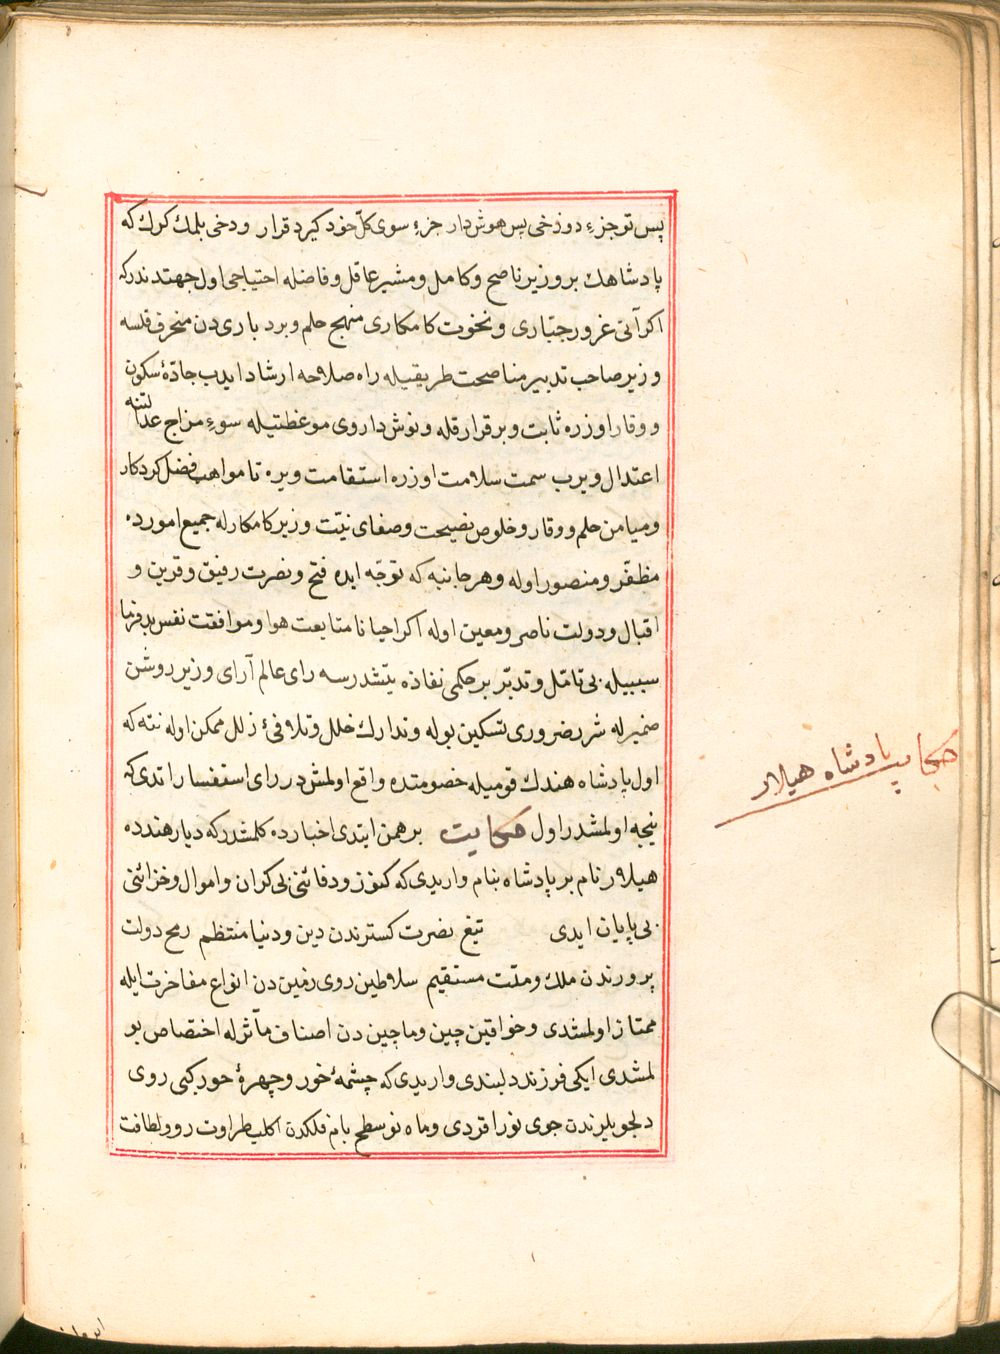 پس تو جزءِ دوزخی پس هوش دار جزءِ سوی کلّ خود کیرد قرار ودخی بلمك کرك که
پادشاهك بر وزیر ناصح وکامل ومشیر عاقل وفاضله احتیاجی اول جهتدندرکه
اکر آنی غرور جبّاری ونخوت کامکاری منهج حلم وبردباریدن منحرف قلسه
وزیر صاحب تدبیر مناصحت طریقیله راه صلاحه ارشاد ایدب جادّۀ سکون
ووقار اوزره ثابت وبرقرار قله ونوش داروی موعظتیله سوءِ مزاج عدالتنه
اعتدال ویرب سمت سلامت اوزره استقامت ویره تا مواهب فضل کردکار
ومیامن حلم ووقار وخلوص نصیحت وصفای نیّت وزیر کامکارله جمیع امورده
مظفّر ومنصور اوله وهر جانبه که توجّه ایده فتح ونصرت رفیق وقرین و
اقبال ودولت ناصر ومعین اوله اکر احیانا متابعت هوا وموافقت نفس بدفرما
سببیله بی تامّل وتدبّر بر حکمی نفاذه یتشدرسه رای عالم آرای وزیر روشن
ضمیرله شرر ضروری تسکین بوله وتدارك خلل وتلافئ زلل ممکن اوله نته که
اول پادشاه هندك قومیله خصومتده واقع اولمش در رای استفسار اتدی که
نیجه اولمشدر اول حکایت برهمن ایتدی اخبارده کلمشدر که دیار هندده
هیلار نام بر پادشاه بنام وار یدی که کنوز ودفائنی بی کران واموال وخزائنی
بی پایان ایدی تیغ نصرت کسترندن دین ودنیا منتظم رمح دولت
پرورندن ملك وملّت مستقیم سلاطین روی زمین دن انواع مفاخرت ایله
ممتاز اولمشدی وخواقین چین وماچین دن اصناف مآثرله اختصاص بو
لمشدی ایکی فرزند دلبندی وار یدی که چشمۀ خور وچهرۀ حور کبی روی
دلجویلرندن جوی نور اقردی وماه نو سطح بام فلکدن اکلیل طراوت رو ولطافت
حکایت پادشاه هیلار